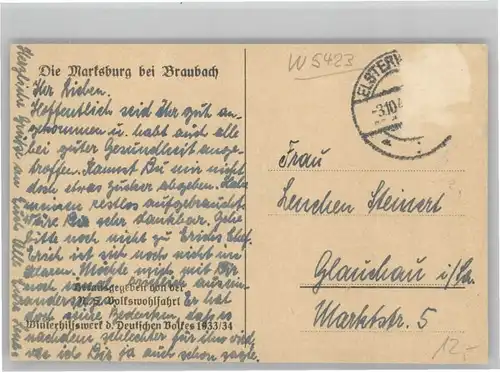 W 5423
Die Marksburg bei Braubach
Ihr Lieben.
Hoffentlich seid Ihr gut an-
gekommen u. habt auch alle
bei guter Gesundheit ange-
troffen. Kannst Du mir nicht
doch etwas Zucker abgeben. Habe
meinen restlos aufgebraucht.
Wäre Dir sehr dankbar. Gehe
bitte noch nicht zu Erichs Chef.
Erich ist sich noch nicht im
Klaren. Möchte mich mit Dir
noch
Herausgegeben von der
N. S. Volkswohlfahrt
Er hat
doch seine Bedenken, daß es
Winterhilfswerk d. Deutschen Volkes 1933/34
nachdem schlechter für ihn wird,
wie ich Dir ja auch schon sagte.
Herzliche Grüße an Euch Alle
ELSTER
-3.10.4
Frau
Lenchen Steinert
Glauchau i/Sa.
Marktstr. 5
12,-